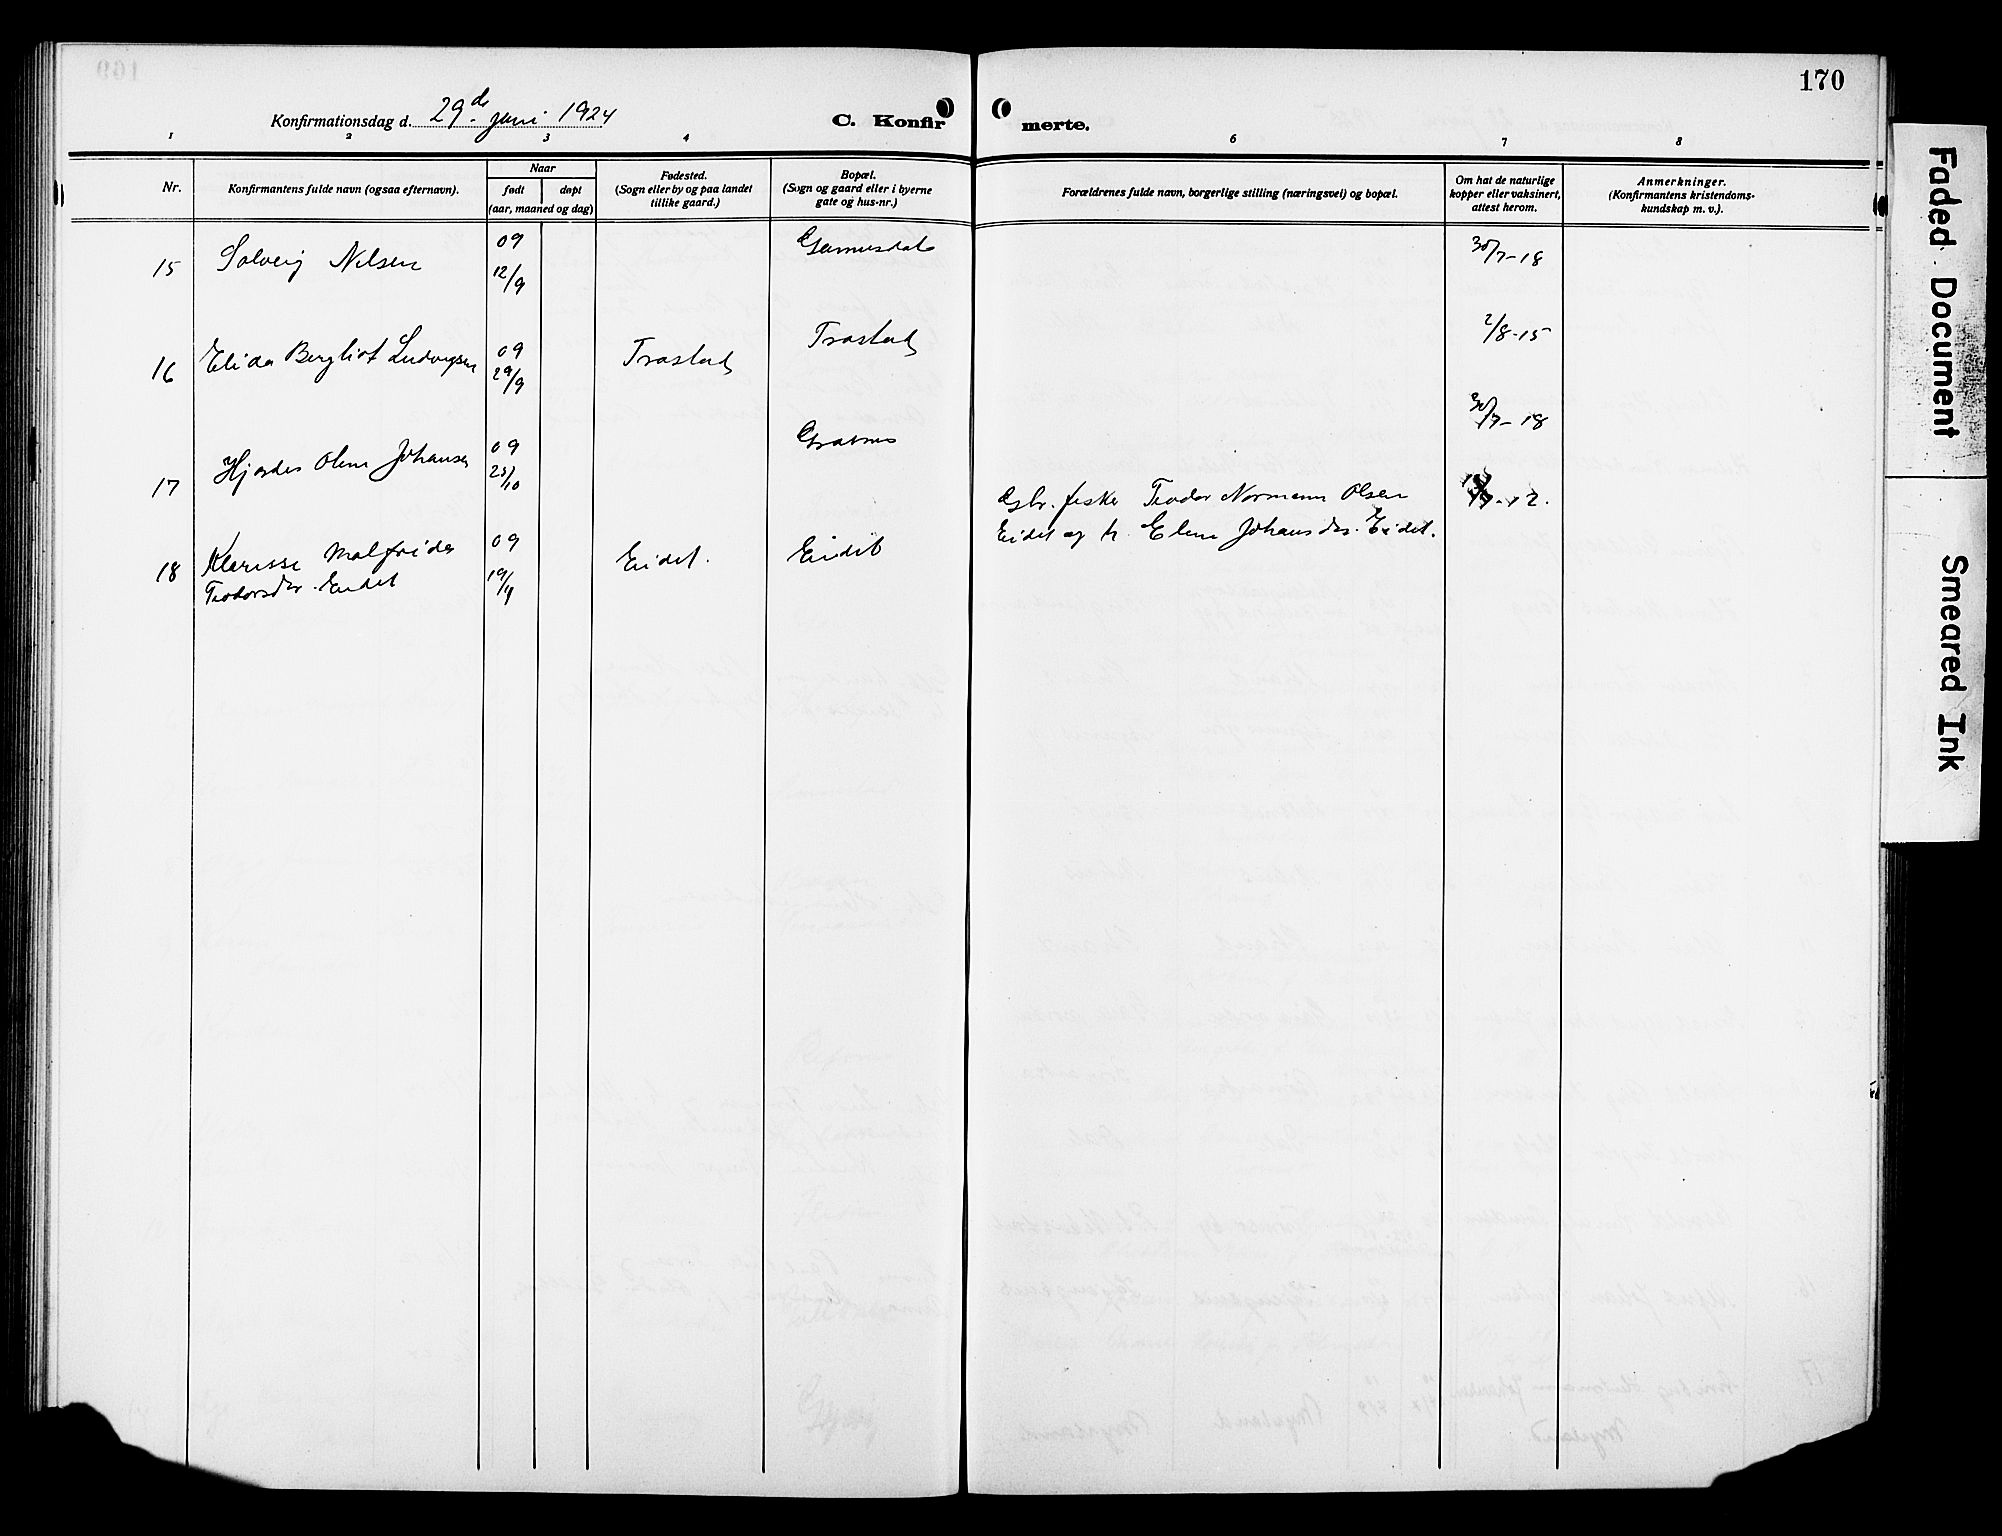 170
Konfirmationsdag d. 29de juni 1924
C. Konfirmerte.
1 2 3 4 5 6 7 8
Nr.
Konfirmantens fulde navn (ogsaa efternavn).
Naar
født døpt
(aar, maaned og dag)
Fødested.
(Sogn eller by og paa landet
tillike gaard.)
Bopæl.
(Sogn og gaard eller i byerne
gate og hus-nr.)
Forældrenes fulde navn, borgerlige stilling (næringsvei) og bopæl.
Om hat de naturlige
kopper eller vaksinert,
attest herom.
Anmerkninger.
(Konfirmantens kristendoms-
kundskap m. v.).
15 Solveig Nilsen 09 12/9 30/7-18
16 Elida Bergliot Ludvigsen 09 29/9 Trastad Trastad 2/8-15
17 Hjordis Oline Johansen 09 Grasnes 30/7-18
Gbr. fisker Teodor Normann Olsen
Eidet og h. Elene Johansdr. Eidet.
18 Klarisse Malfrida 09 Eidet. Eidet
Teodorsdr. Eidet
Faded Document
Smeared Ink